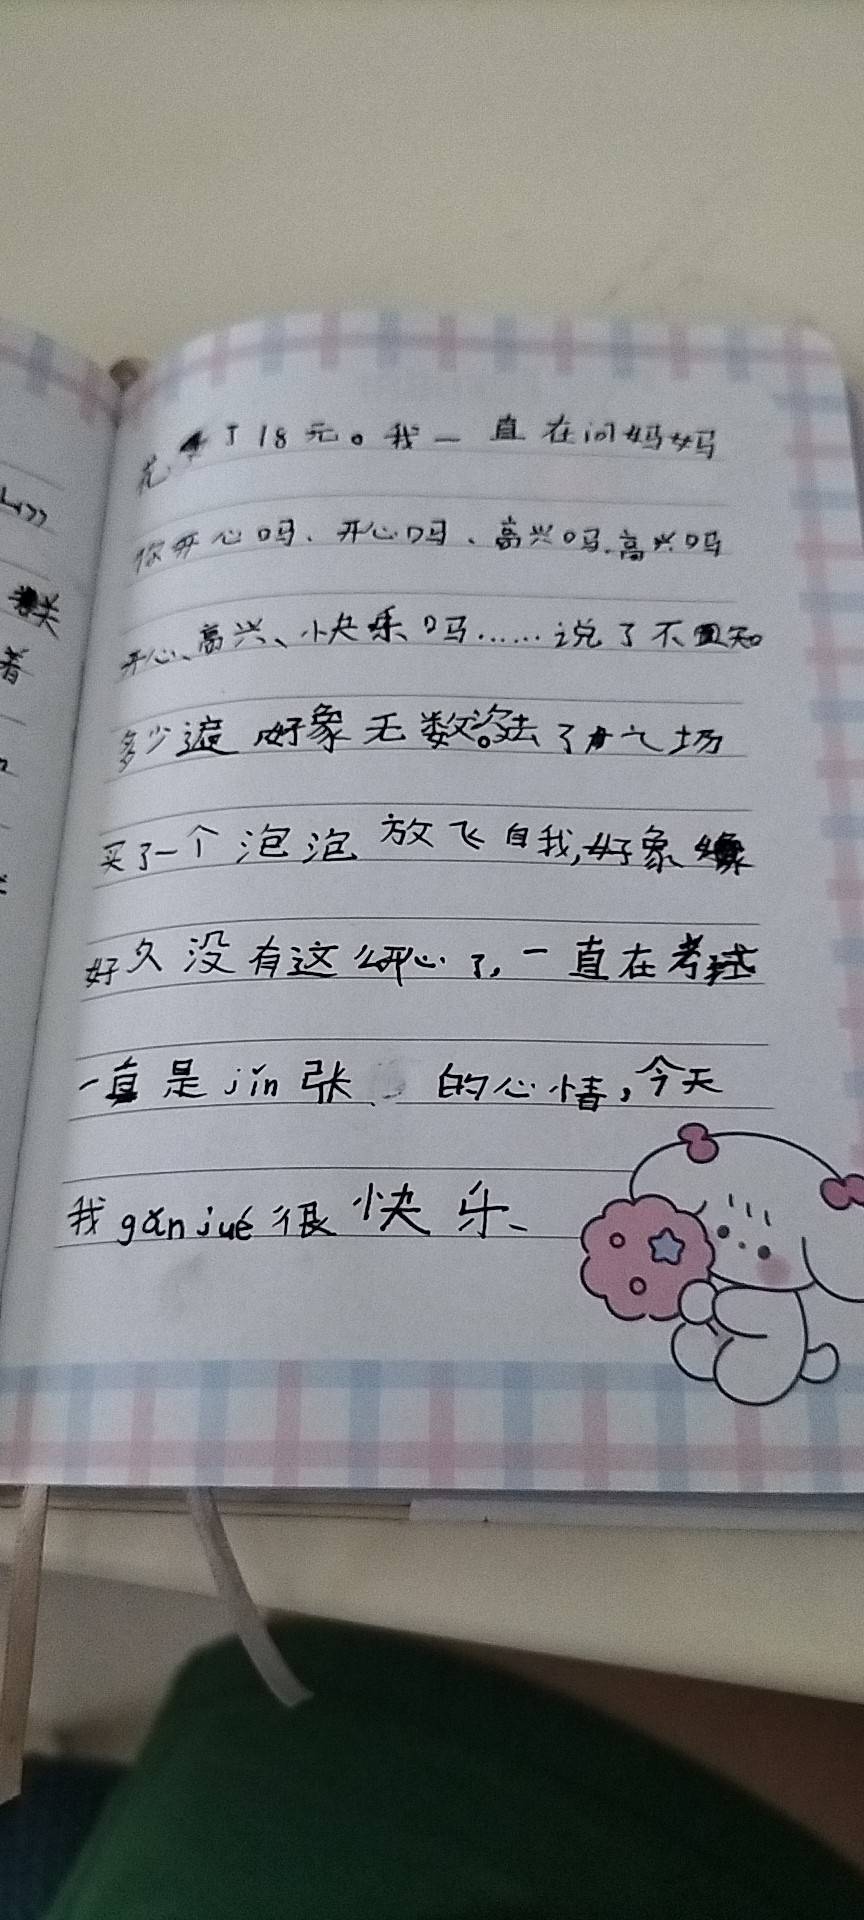 花了18元。我一直在问妈妈
你开心吗、开心吗、高兴吗、高兴吗
开心、高兴、快乐吗……说了不知
多少遍好象无数次。去了广场
买了一个泡泡放飞自我,好象
好久没有这么开心了,一直在考试
一直是jǐn张的心情,今天
我gǎnjué很快乐、
关
着